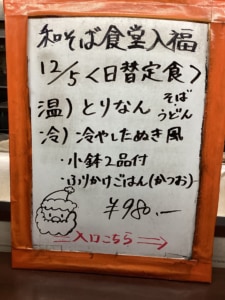 和そば食堂入福
12/5<日替定食>
温)とりなん そば うどん
冷)冷やしたぬき風
・小鉢2品付
・ふりかけごはん(かつお)
¥980.―
入口こちら→